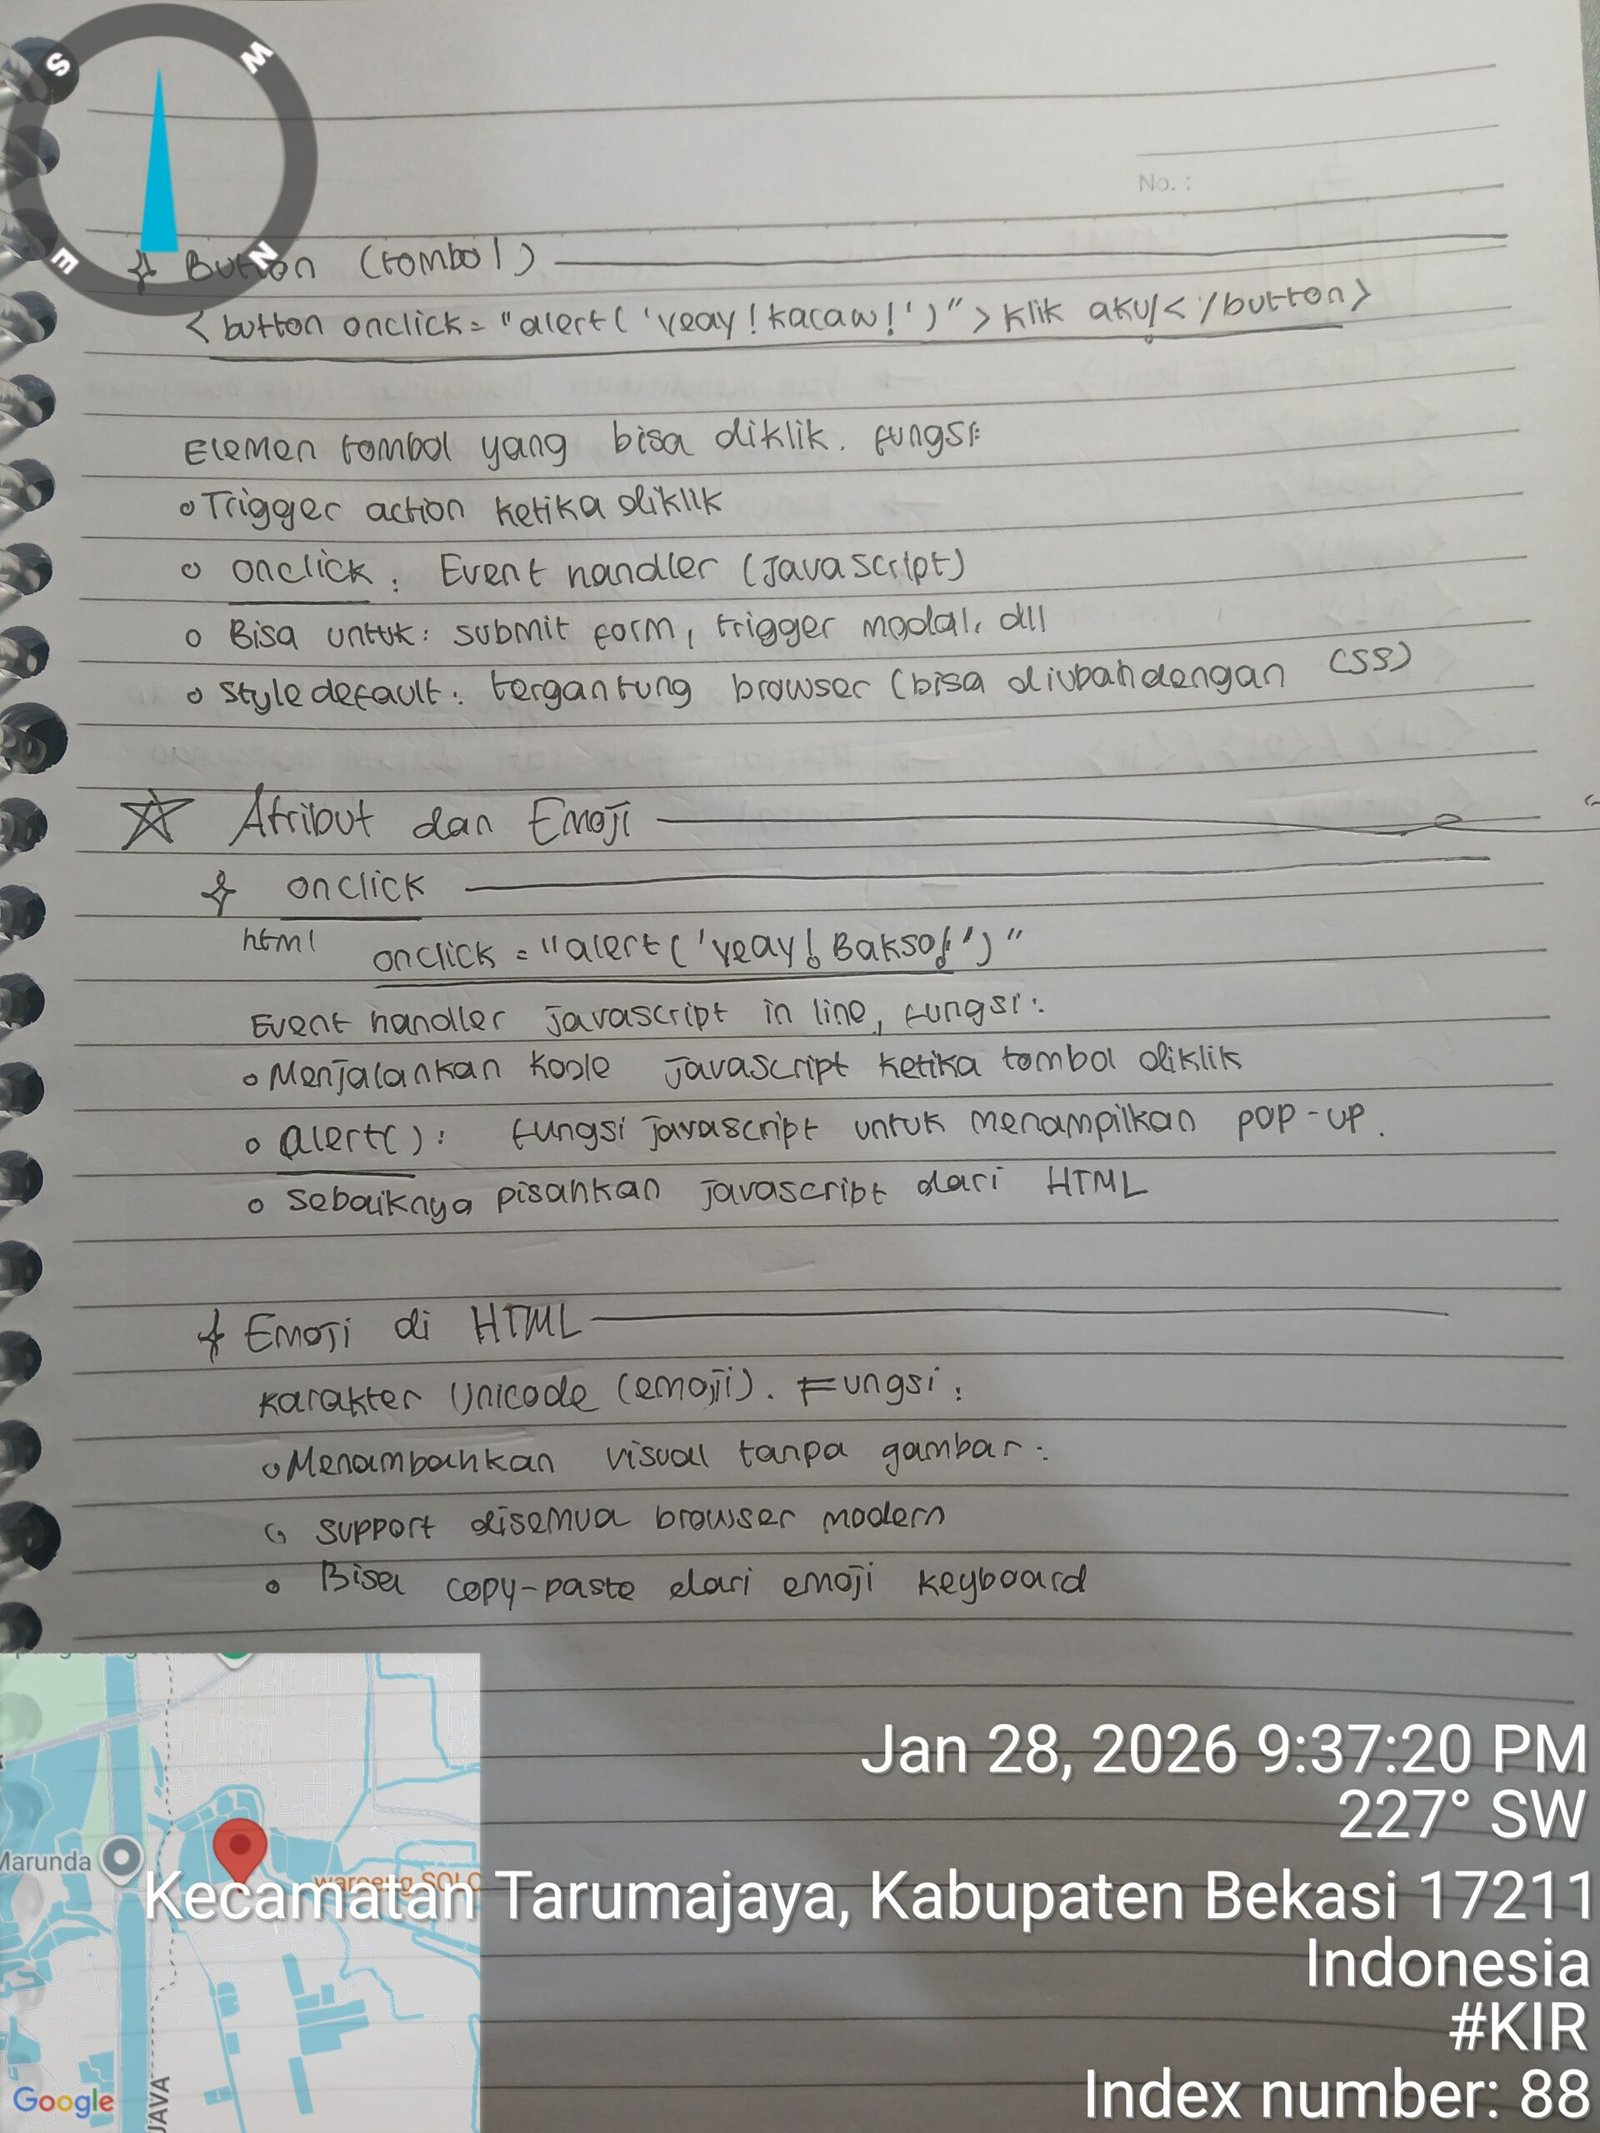 S
W
E
N
No. :
Button (tombol)
<button onclick="alert('Yeay!kacaw!')">Klik aku!</button>
Elemen tombol yang bisa diklik. Fungsi:
Trigger action ketika diklik
onclick : Event handler (Javascript)
Bisa untuk: submit form, trigger modal, dll
Style default: tergantung browser (bisa diubah dengan CSS)
Atribut dan Emoji
onclick
html onclick="alert('Yeay! Bakso!')"
Event handler javascript in line, fungsi:
Menjalankan kode javascript ketika tombol diklik
alert(): fungsi javascript untuk menampilkan pop-up.
Sebaiknya pisahkan javascript dari HTML
Emoji di HTML
Karakter Unicode (emoji). Fungsi:
Menambahkan visual tanpa gambar:
Support disemua browser modern
Bisa copy-paste dari emoji keyboard
Marunda
waroeng SOLO
JAVA
Google
Jan 28, 2026 9:37:20 PM
227° SW
Kecamatan Tarumajaya, Kabupaten Bekasi 17211
Indonesia
#KIR
Index number: 88